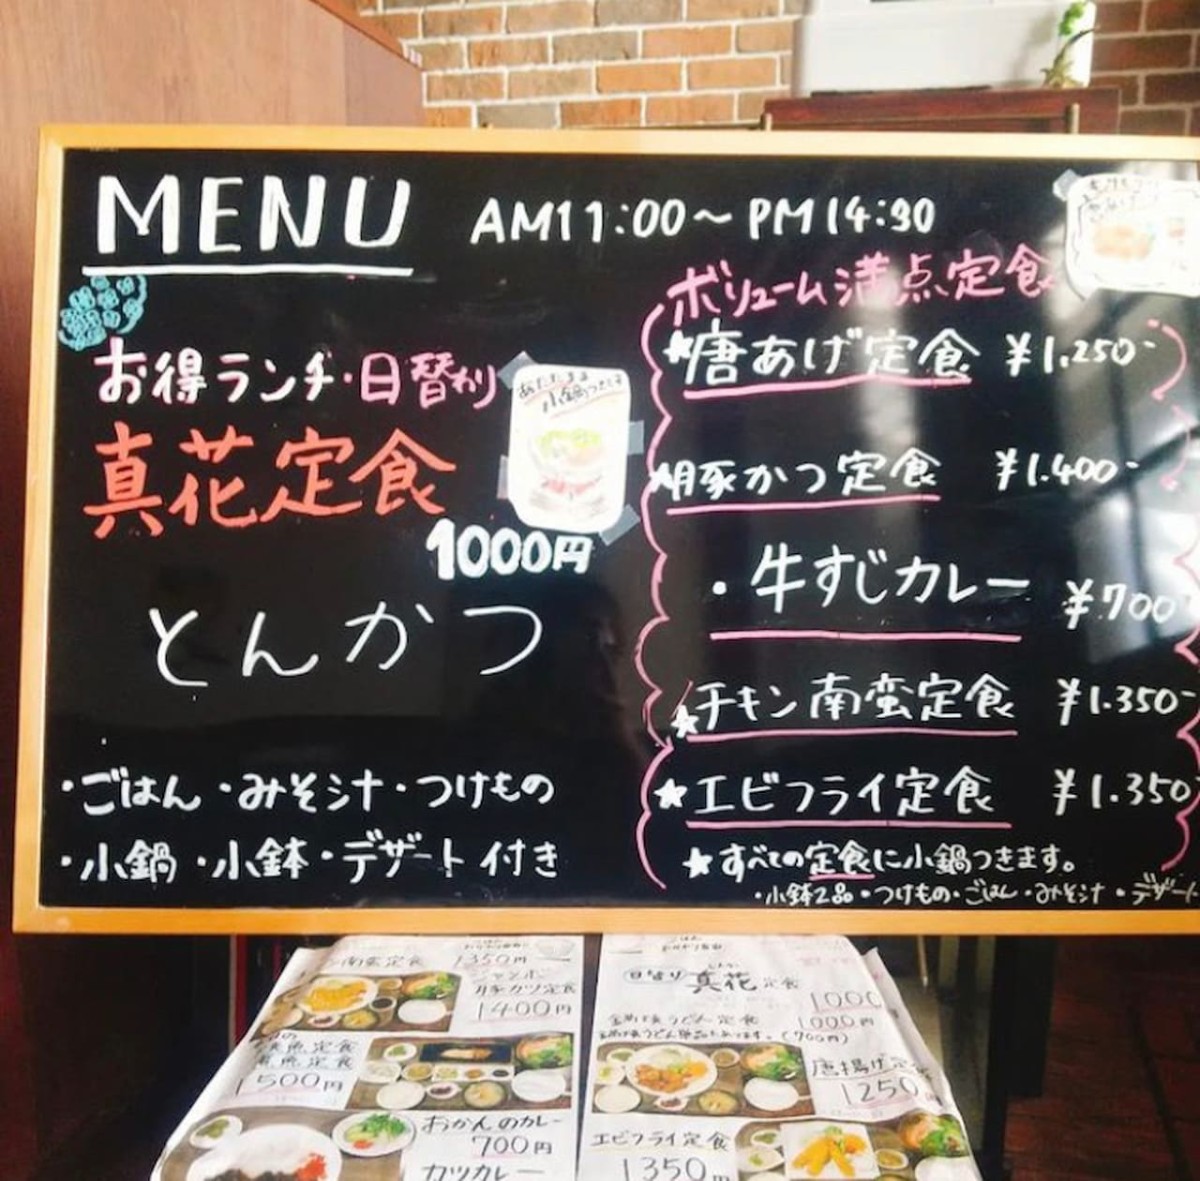 MENU
AM11:00～PM14:30
お得ランチ・日替り
真花定食
1000円
とんかつ
・ごはん・みそ汁・つけもの
・小鍋・小鉢・デザート付き
小鍋つきます
ボリューム満点定食
★唐あげ定食 ¥1.250-
★豚かつ定食 ¥1.400-
・牛すじカレー ¥700
★チキン南蛮定食 ¥1.350-
★エビフライ定食 ¥1.350
★すべての定食に小鍋つきます。
・小鉢2品・つけもの・ごはん・みそ汁・デザート
南蛮定食 1350円
ジャンボ
豚カツ定食
1400円
魚定食
煮魚定食
1500円
おかんのカレー
700円
カツカレー
日替り 真花定食
1000
鍋焼うどん定食 1000円
鍋焼うどん単品もあります。(700円)
唐揚げ定
1250
エビフライ定食
1350円